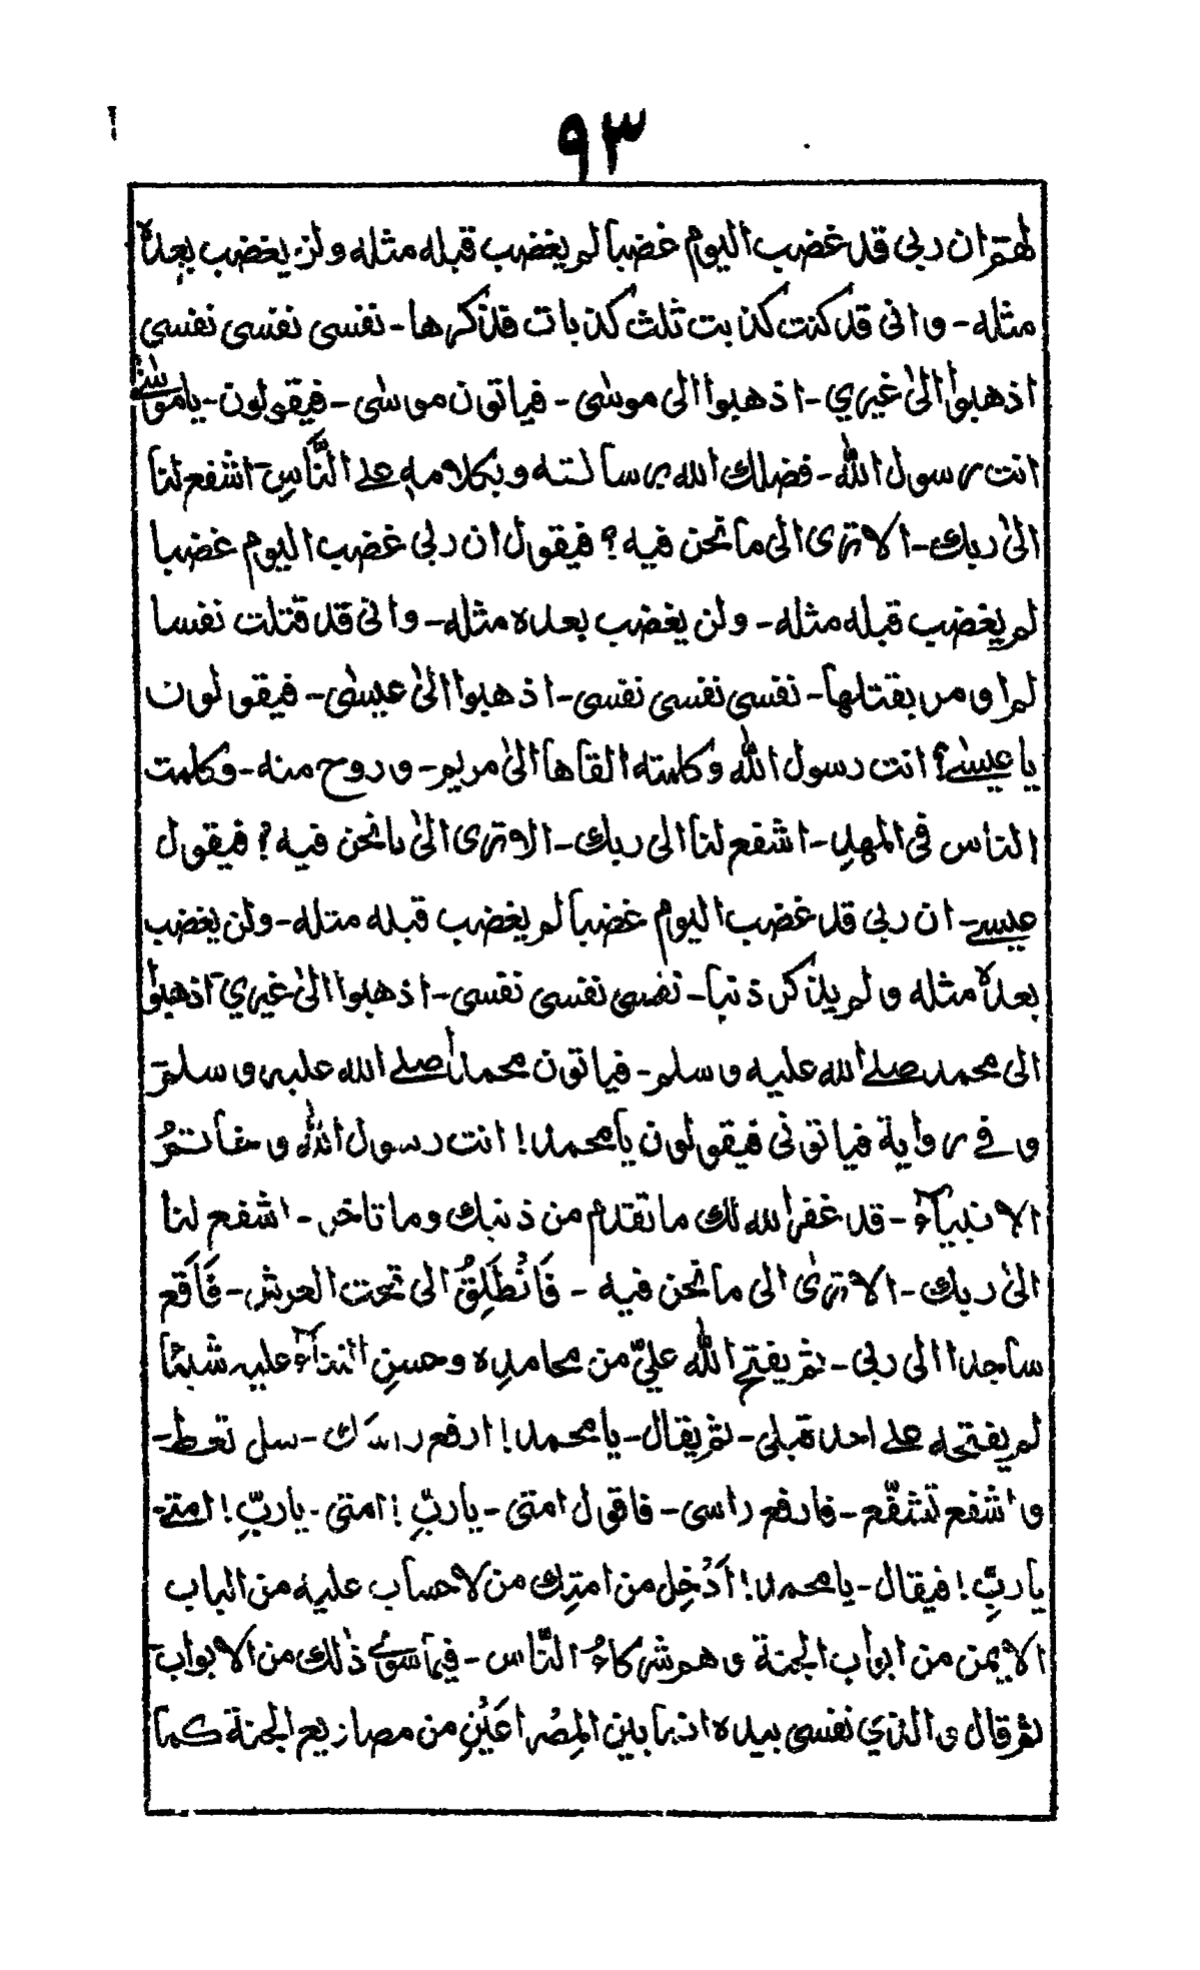 ٩٣
لهم ان ربی قد غضب الیوم غضبا لم یغضب قبله مثله ولن یغضب بعده
مثله - و انی قد کنت کذبت ثلث کذبات فذکرها - نفسی نفسی نفسی
اذهبوا الیٰ غیری - اذهبوا الی موسٰی - فیاتون موسٰی - فیقولون - یا موسٰے
انت رسول الله - فضلك الله برسالته و بکلامهٖ علے النَّاسِ - اشفع لنا
الیٰ ربك - الا تری الی ما نحن فیه ؟ فیقول ان ربی غضب الیوم غضبا
لم یغضب قبله مثله - ولن یغضب بعده مثله - وانی قد قتلت نفسا
لم اومر بقتلها - نفسی نفسی نفسی - اذهبوا الیٰ عیسٰی - فیقولون
یا عیسٰے ؟ انت رسول اللّٰه وکلمته القاها الیٰ مریم - و روح منه - وکلمت
الناس فی المهدِ - اشفع لنا الی ربك - الا تری الیٰ ما نحن فیه ؟ فیقول
عیسے - ان ربی قد غضب الیوم غضبا لم یغضب قبله مثله - ولن یغضب
بعده مثله و لم یذکر ذنبا - نفسی نفسی نفسی - اذهبوا الیٰ غیری - اذهبوا
الی محمد صلے الله علیه و سلم - فیاتون محمداً صلے الله علیه و سلم -
و فے روایة فیاتونی فیقولون یا محمد ! انت رسول اللّٰه و خاتمُ
الانبیآء - قد غفر الله لك ما تقدم من ذنبك وما تاخر - اشفع لنا
الیٰ ربك - الا تریٰ الی ما نحن فیه - فَانْطَلِقُ الی تحت العرش - فَاَقَع
ساجدا الی ربی - ثم یفتح اللّٰه علیّ من محامدِه وحسنِ الثناءِ علیه شیئا
لم یفتحه علے احد قبلی - ثم یقال - یا محمد ! ارفع راسَك - سل تعط -
و اشفع تشفّع - فارفع راسی - فاقول امتی - یا ربِّ ! امتی - یا ربِّ ! امتے -
یا ربِّ ! فیقال - یا محمد ! اَدْخِل من امتِك من لا حساب علیه من الباب
الایمن من ابواب الجنة و هم شرکاءُ النّاس - فیما سوٰی ذٰلك من الابواب -
ثم قال و الذی نفسی بیده انما بین المِصْراعَیْنِ من مصاریع الجنة کما